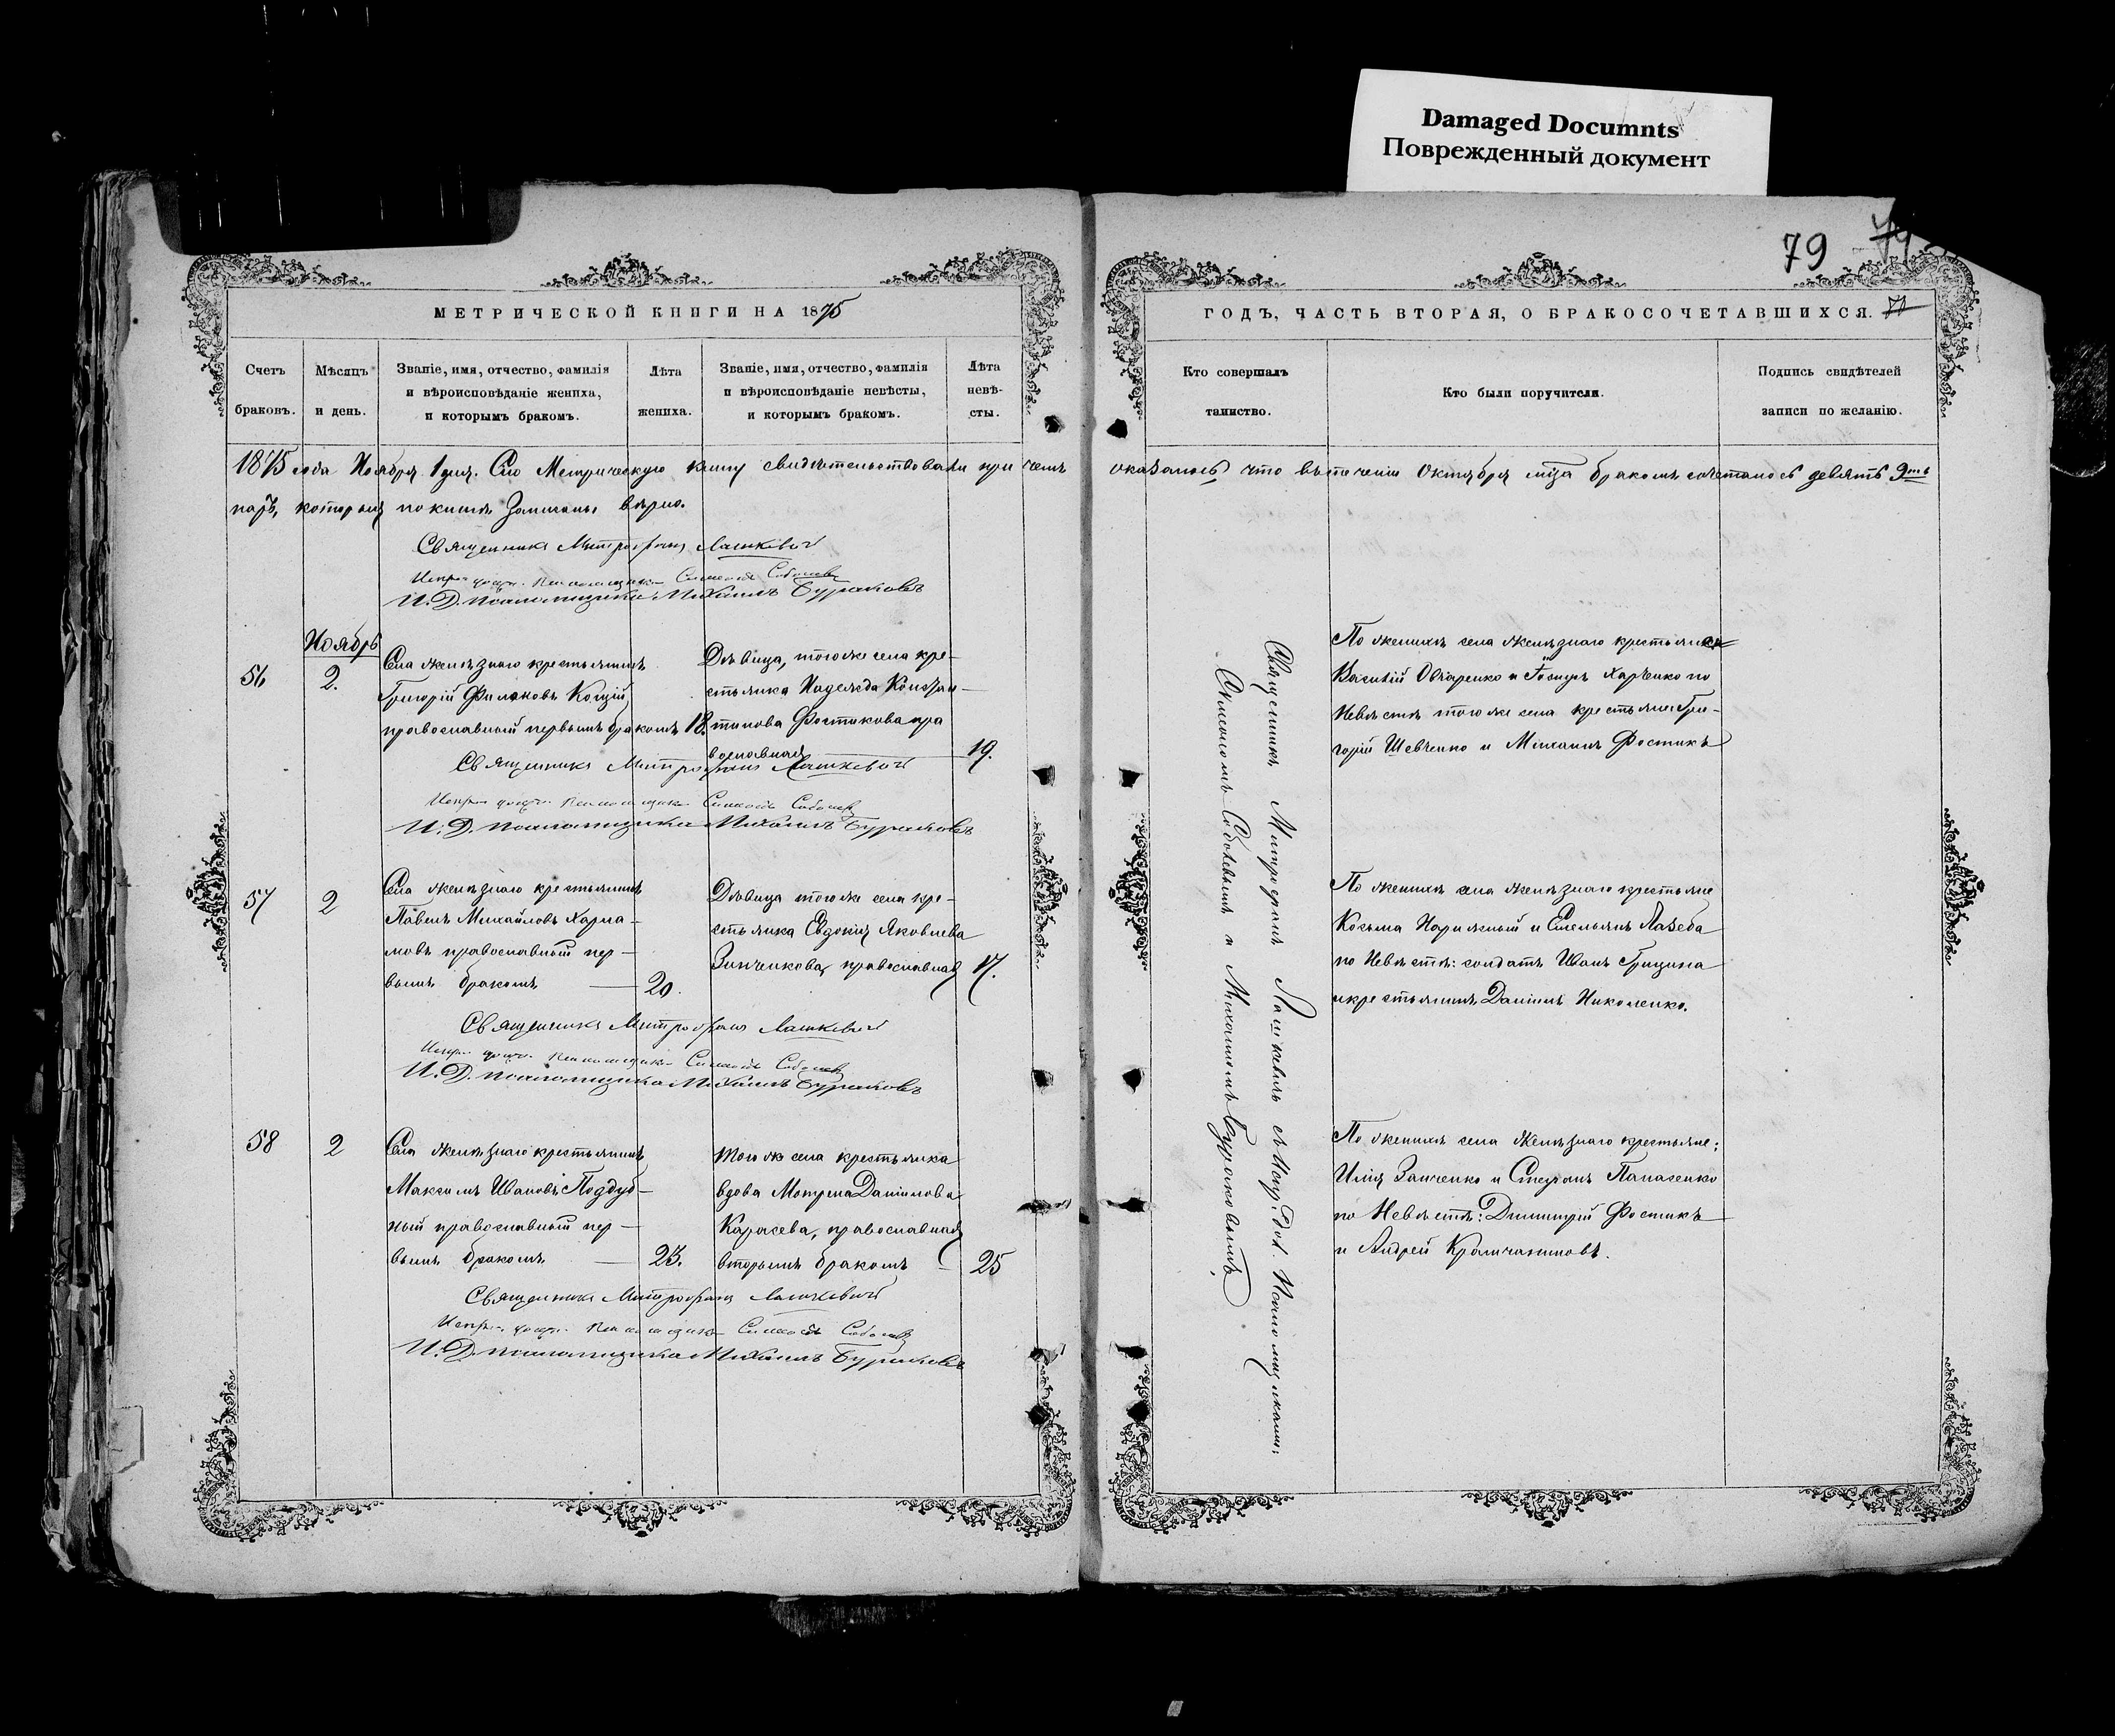 Damaged Documnts
Поврежденный документ
79
МЕТРИЧЕСКОЙ КНИГИ НА 1875
Счетъ браковъ.
Мѣсяцъ и день.
Званіе, имя, отчество, фамилія
и вѣроисповѣданіе жениха,
и которымъ бракомъ.
Лѣта жениха.
Званіе, имя, отчество, фамилія
и вѣроисповѣданіе невѣсты,
и которымъ бракомъ.
Лѣта
невѣ-
сты.
1875 года Ноября 1 дня. Сію Метрическую книгу свидѣтельствовали при чемъ
паръ, которыя по книгѣ записаны вѣрно.
Священникъ Митрофанъ Лашкевичъ
Псаломщикъ
И. Д. Псаломщика Михаилъ Бураковъ
Ноябрь
56
2.
Села Желѣзнаго крестьянинъ
Григорій
православный первымъ бракомъ
18.
Дѣвица, того же села кре-
стьянка Надежда Констан-
тинова Фостикова пра
вославная
19.
Священникъ Митрофанъ Лашкевичъ
Псаломщикъ
И. Д. Псаломщика Михаилъ Бураковъ
57
2
Села Желѣзнаго крестьянинъ
Павелъ Михайловъ Харла-
мовъ православный пер-
вымъ бракомъ
20.
Дѣвица того же села кре-
стьянка Евдокія Яковлева
Зинченкова, православная
17.
Священникъ Митрофанъ Лашкевичъ
Псаломщикъ
И. Д. Псаломщика Михаилъ Бураковъ
58
2
Села Желѣзнаго крестьянинъ
Максимъ Ивановъ Поддуб-
ный православный пер-
вымъ бракомъ
23.
того ж села крестьянка
вдова Мотрена Даніилова
Карасева, православная
вторымъ бракомъ
25
Священникъ Митрофанъ Лашкевичъ
Псаломщикъ
И. Д. Псаломщика Михаилъ Бураковъ
ГОДЪ, ЧАСТЬ ВТОРАЯ, О БРАКОСОЧЕТАВШИХСЯ.
Кто совершалъ
таинство.
Кто были поручители.
Подпись свидѣтелей
записи по желанію.
оказалось что въ теченіи Октября м̃ца бракомъ сочеталось девять 9ть
Священникъ Митрофанъ Лашкевичъ съ Псаломщиками:
Соболевымъ и Михаиломъ Бураковымъ
По женихѣ села Желѣзнаго крестьяне
Василій Овчаренко и Іосифъ Харченко по
Невѣстѣ того же села крестьяне Гри-
горій Шевченко и Михаилъ Фостикъ
По женихѣ села Желѣзнаго крестьяне
Козьма Нарижный и Емельянъ Лазеба
по Невѣстѣ: солдатъ Иванъ Грицина
и крестьянинъ Даніилъ Николенко.
По женихѣ села Желѣзнаго крестьяне:
Илія Заиченко и Стефанъ Панасенко
по Невѣстѣ: Димитрій Фостикъ
и Андрей